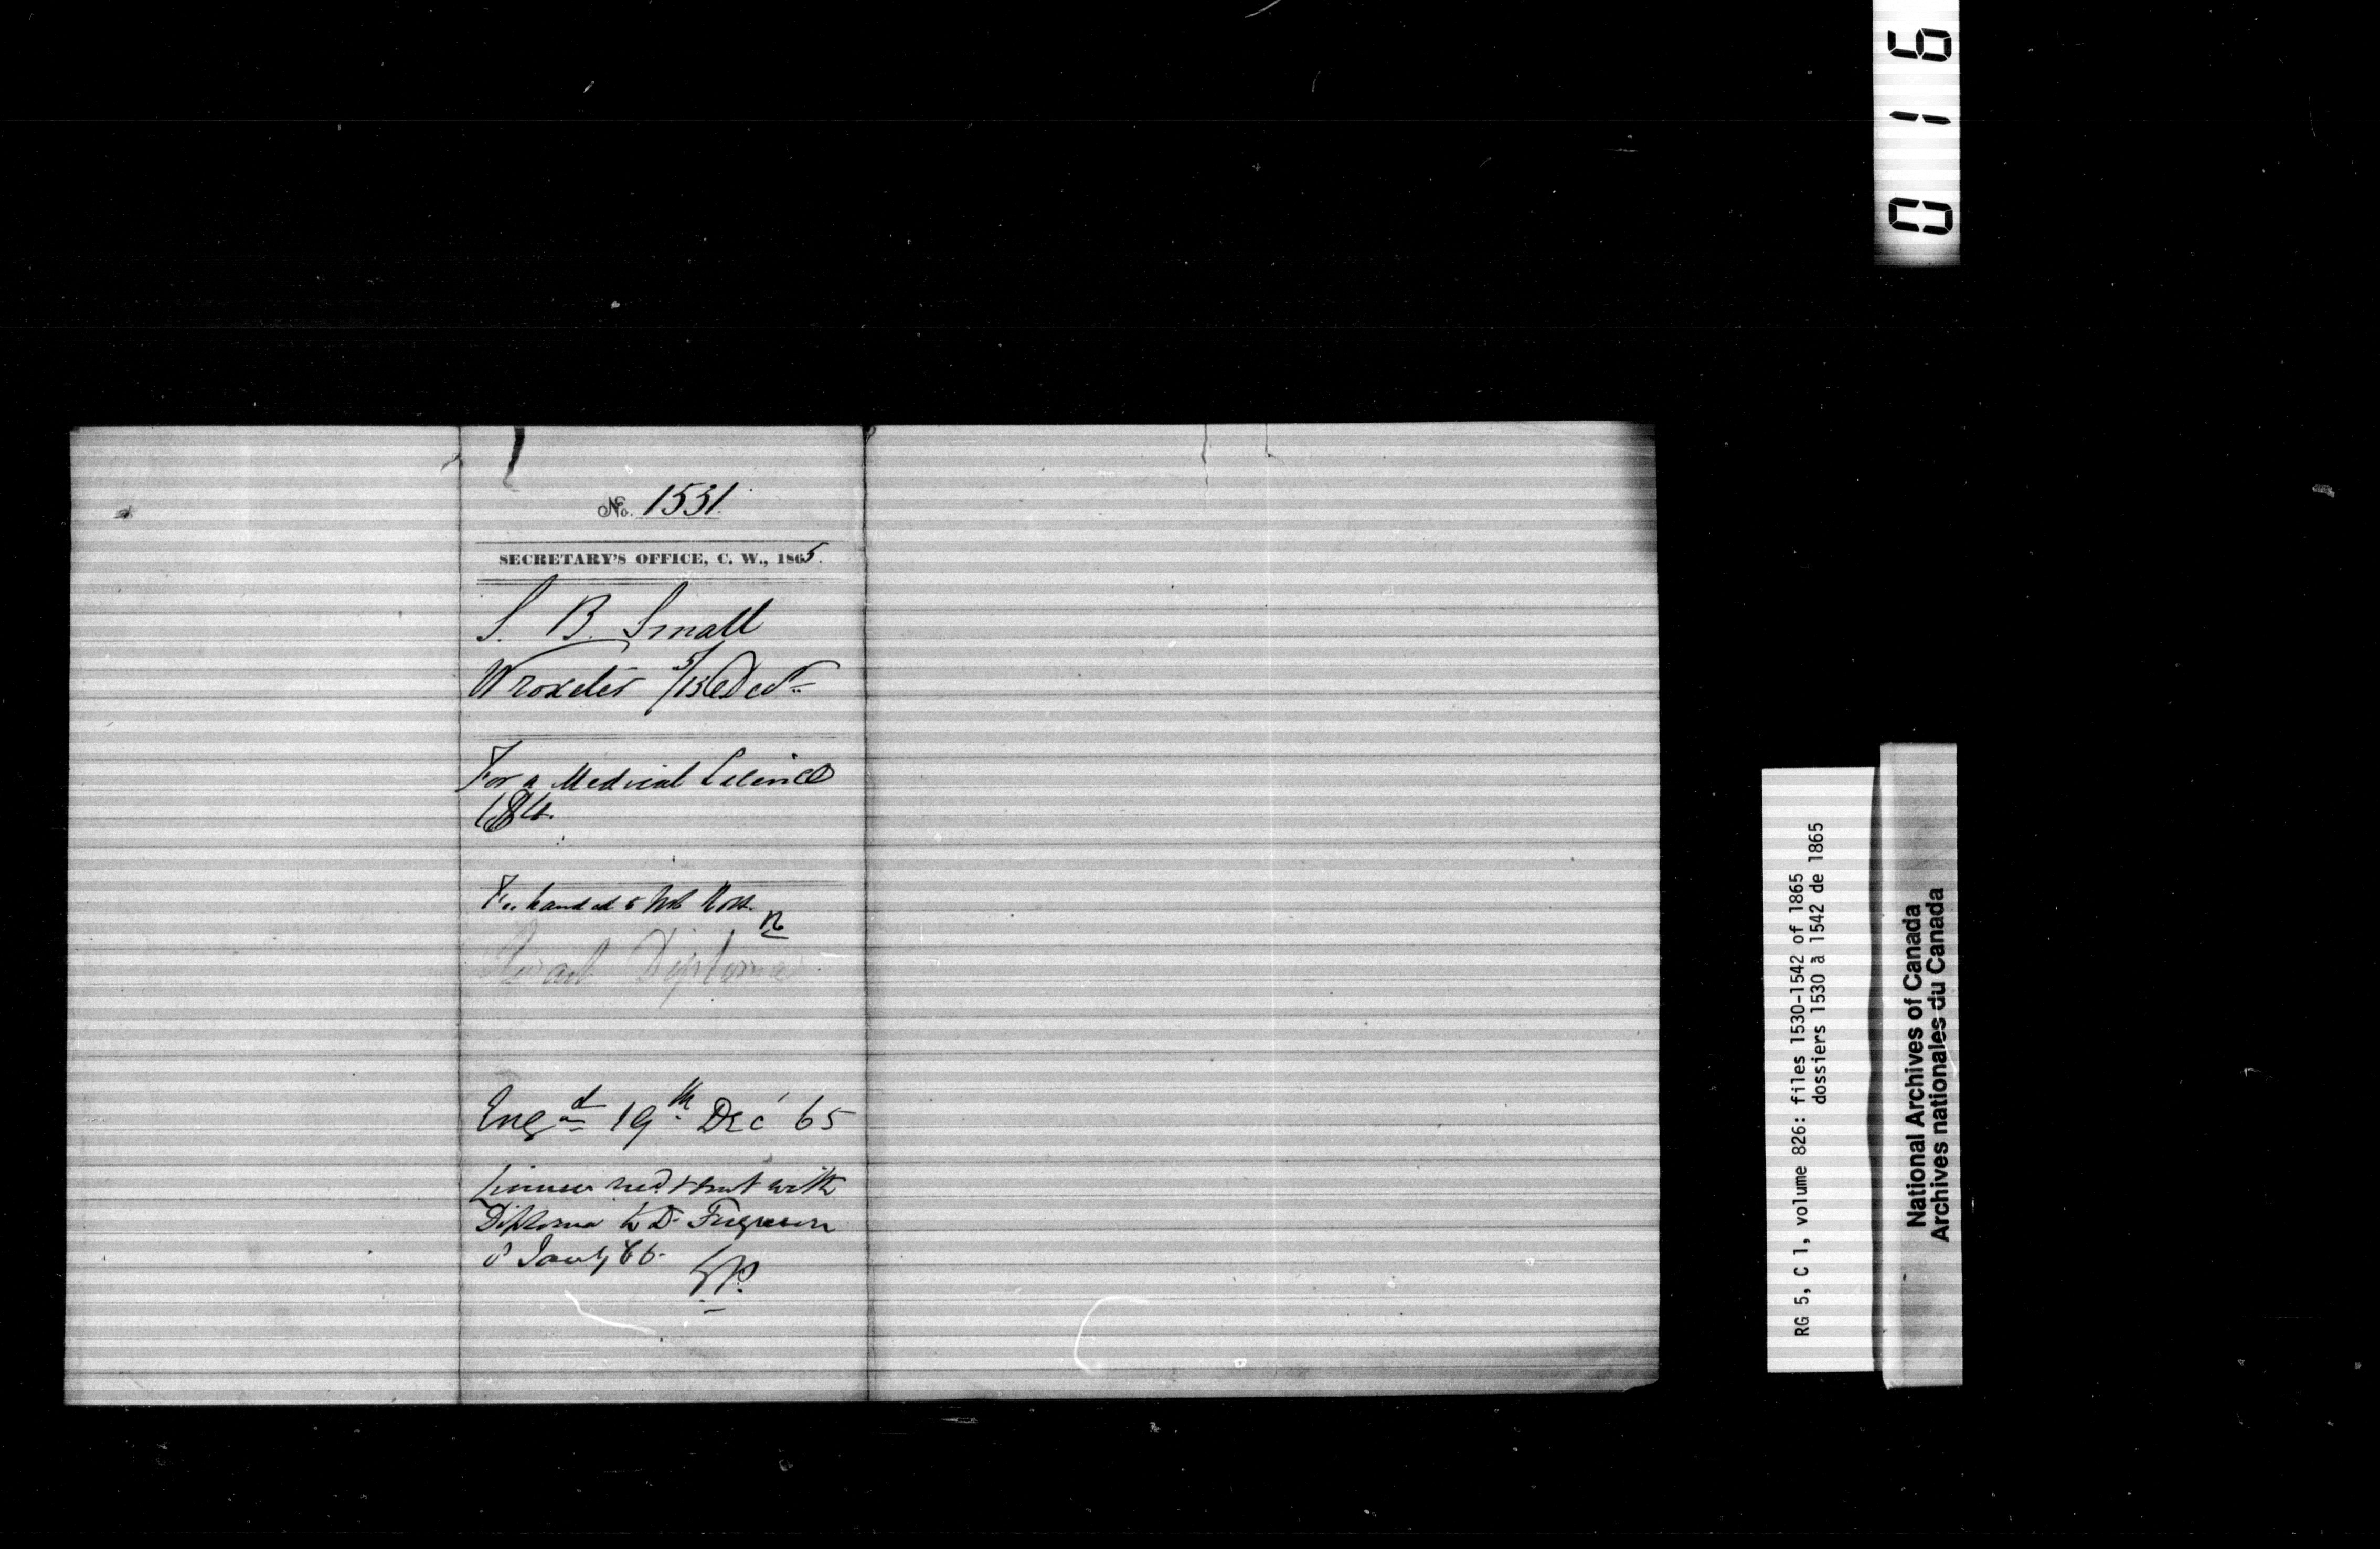 No. 1531.
SECRETARY'S OFFICE, C. W., 1865.
S. B. Small
Wroxeter 5/15 Decr
For a Medical Licence
Fee handed to Mr Ross.
Diploma
Engd 19th Dec 65
License recd & sent with
Diploma to Dr Ferguson
8 Jany 66.
0 1 6
RG 5, C 1, volume 826: files 1530-1542 of 1865
dossiers 1530 à 1542 de 1865
National Archives of Canada
Archives nationales du Canada